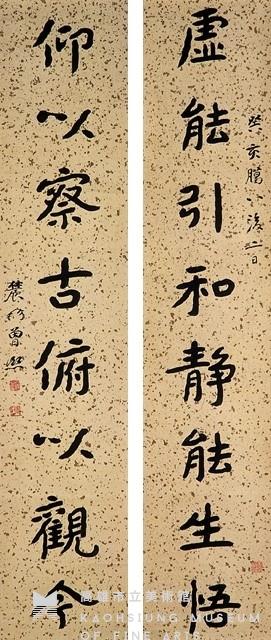 虛能引和靜能生悟
癸亥臘八後二日
仰以察古俯以觀今
農髯曾熙
高雄市立美術館
KAOHSIUNG MUSEUM
OF FINE ARTS